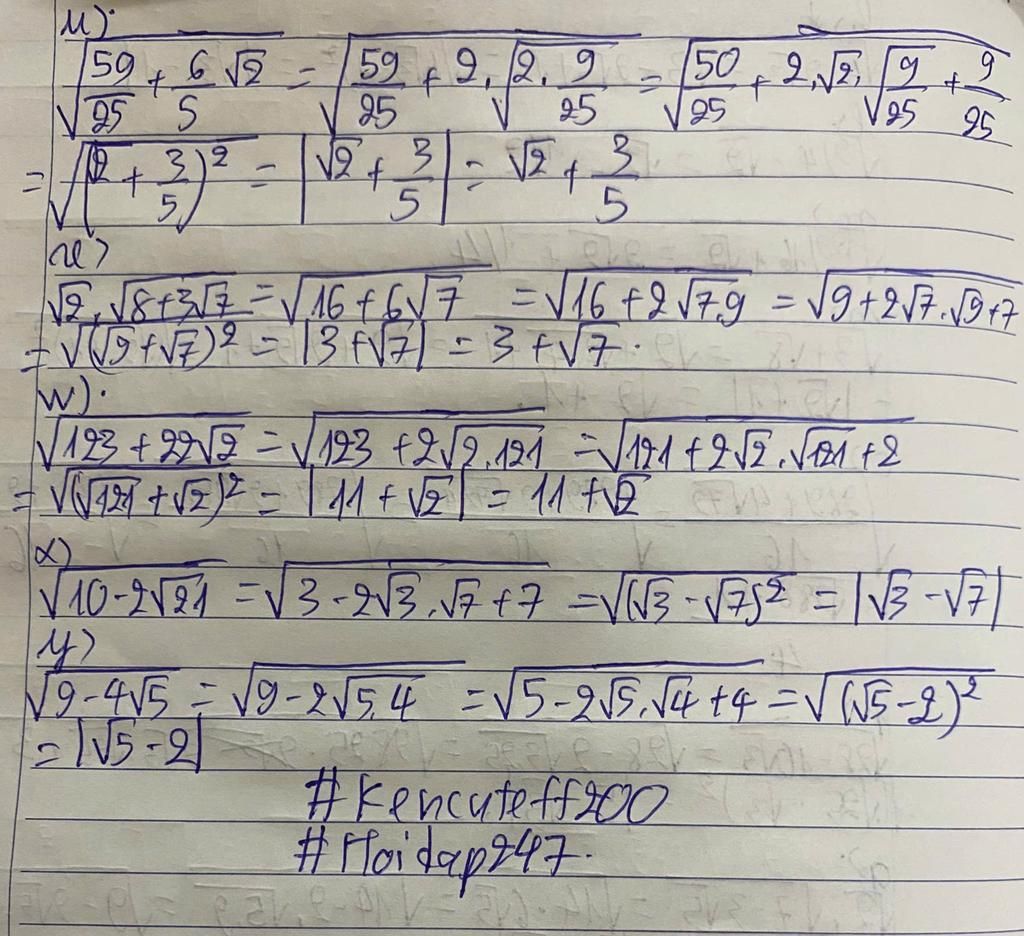 u)
√(59/25 + 6/5 √2) = √(59/25 + 2.√(2. 9/25)) = √(50/25 + 2.√2.√(9/25) + 9/25)
= √((2 + 3/5)²) = |√2 + 3/5| = √2 + 3/5
√2.√(8+3√7) = √(16+6√7) = √(16+2√(7.9)) = √(9+2√7.√9+7)
= √((√9+√7)²) = |3+√7| = 3+√7.
w).
√(123+22√2) = √(123+2√(2.121)) = √(121+2√2.√121+2)
= √((√121+√2)²) = |11+√2| = 11+√2
x)
√(10-2√21) = √(3-2√3.√7+7) = √((√3-√7)²) = |√3-√7|
y)
√(9-4√5) = √(9-2√(5.4)) = √(5-2√5.√4+4) = √((√5-2)²)
= |√5-2|
#Kencuteff200
#Hoidap247.